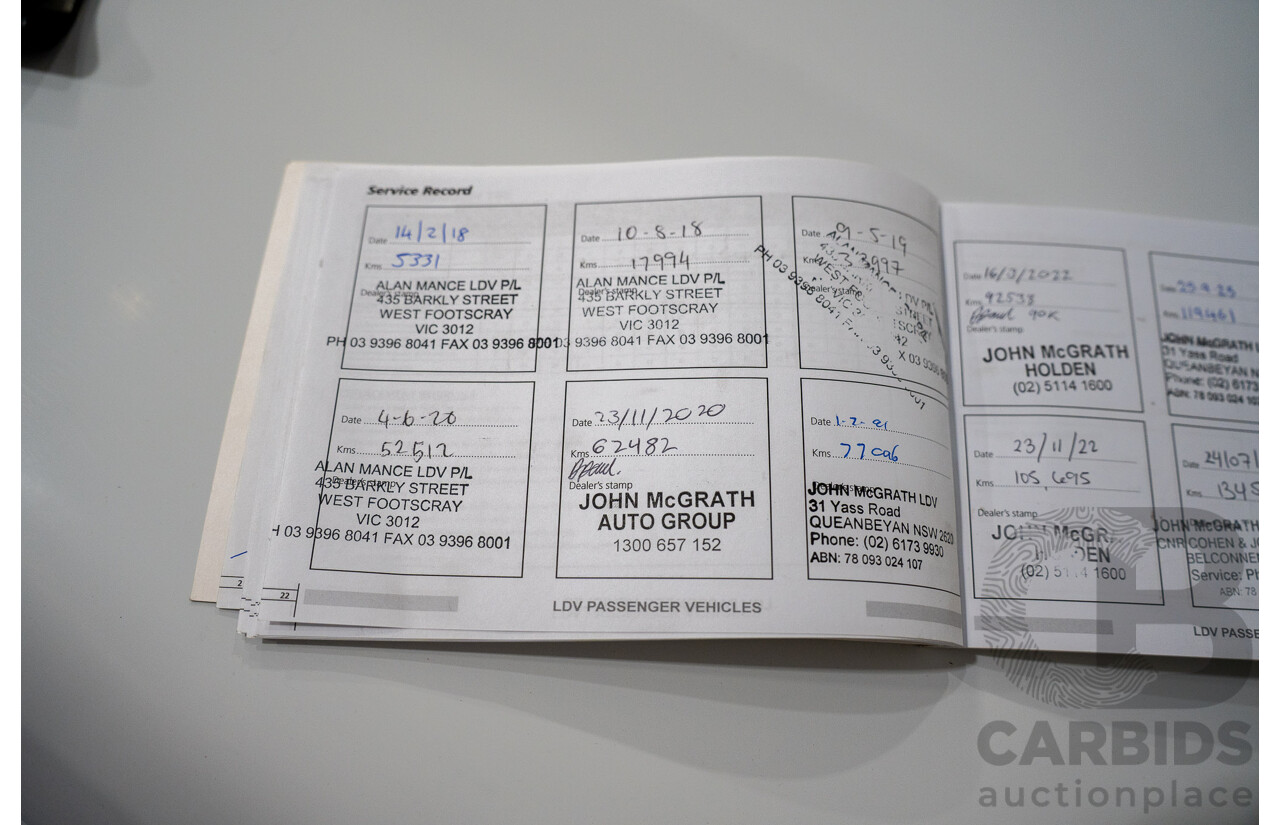 Service Record
Date 14/2/18
Kms 5331
Dealer's stamp
ALAN MANCE LDV P/L
435 BARKLY STREET
WEST FOOTSCRAY
VIC 3012
PH 03 9396 8041 FAX 03 9396 8001
Date 10-8-18
Kms 17994
Dealer's stamp
ALAN MANCE LDV P/L
435 BARKLY STREET
WEST FOOTSCRAY
VIC 3012
03 9396 8041 FAX 03 9396 8001
Date 09-5-19
Kms
Dealer's stamp
PH 03 9396 8041
Date 4-6-20
Kms 52512
Dealer's stamp
ALAN MANCE LDV P/L
435 BARKLY STREET
WEST FOOTSCRAY
VIC 3012
H 03 9396 8041 FAX 03 9396 8001
Date 23/11/2020
Kms 62482
Dealer's stamp
JOHN McGRATH
AUTO GROUP
1300 657 152
Date 1-2-21
Kms 77096
Dealer's stamp
JOHN McGRATH LDV
31 Yass Road
QUEANBEYAN NSW 2620
Phone: (02) 6173 9930
ABN: 78 093 024 107
22
LDV PASSENGER VEHICLES
Date 16/3/2022
Kms 92533
90K
Dealer's stamp
JOHN McGRATH
HOLDEN
(02) 5114 1600
Date
Kms 119461
JOHN McGRATH
31 Yass Road
QUEANBEYAN N
Phone: (02) 6173
ABN: 78 093 024 107
Date 23/11/22
Kms 105,695
Dealer's stamp
JOHN McGR
(02) 5114 1600
Date 24/07/
Kms 1345
JOHN McGRATH
CNR COHEN & J
BELCONNE
Service: Ph
ABN: 78
LDV PASSE
2
CB
CARBIDS
auctionplace